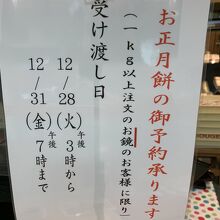 お正月餅の御予約承ります
（一kg以上注文のお鏡のお客様に限り）
受け渡し日
12/28（火）午後3時から
12/31（金）午後7時まで